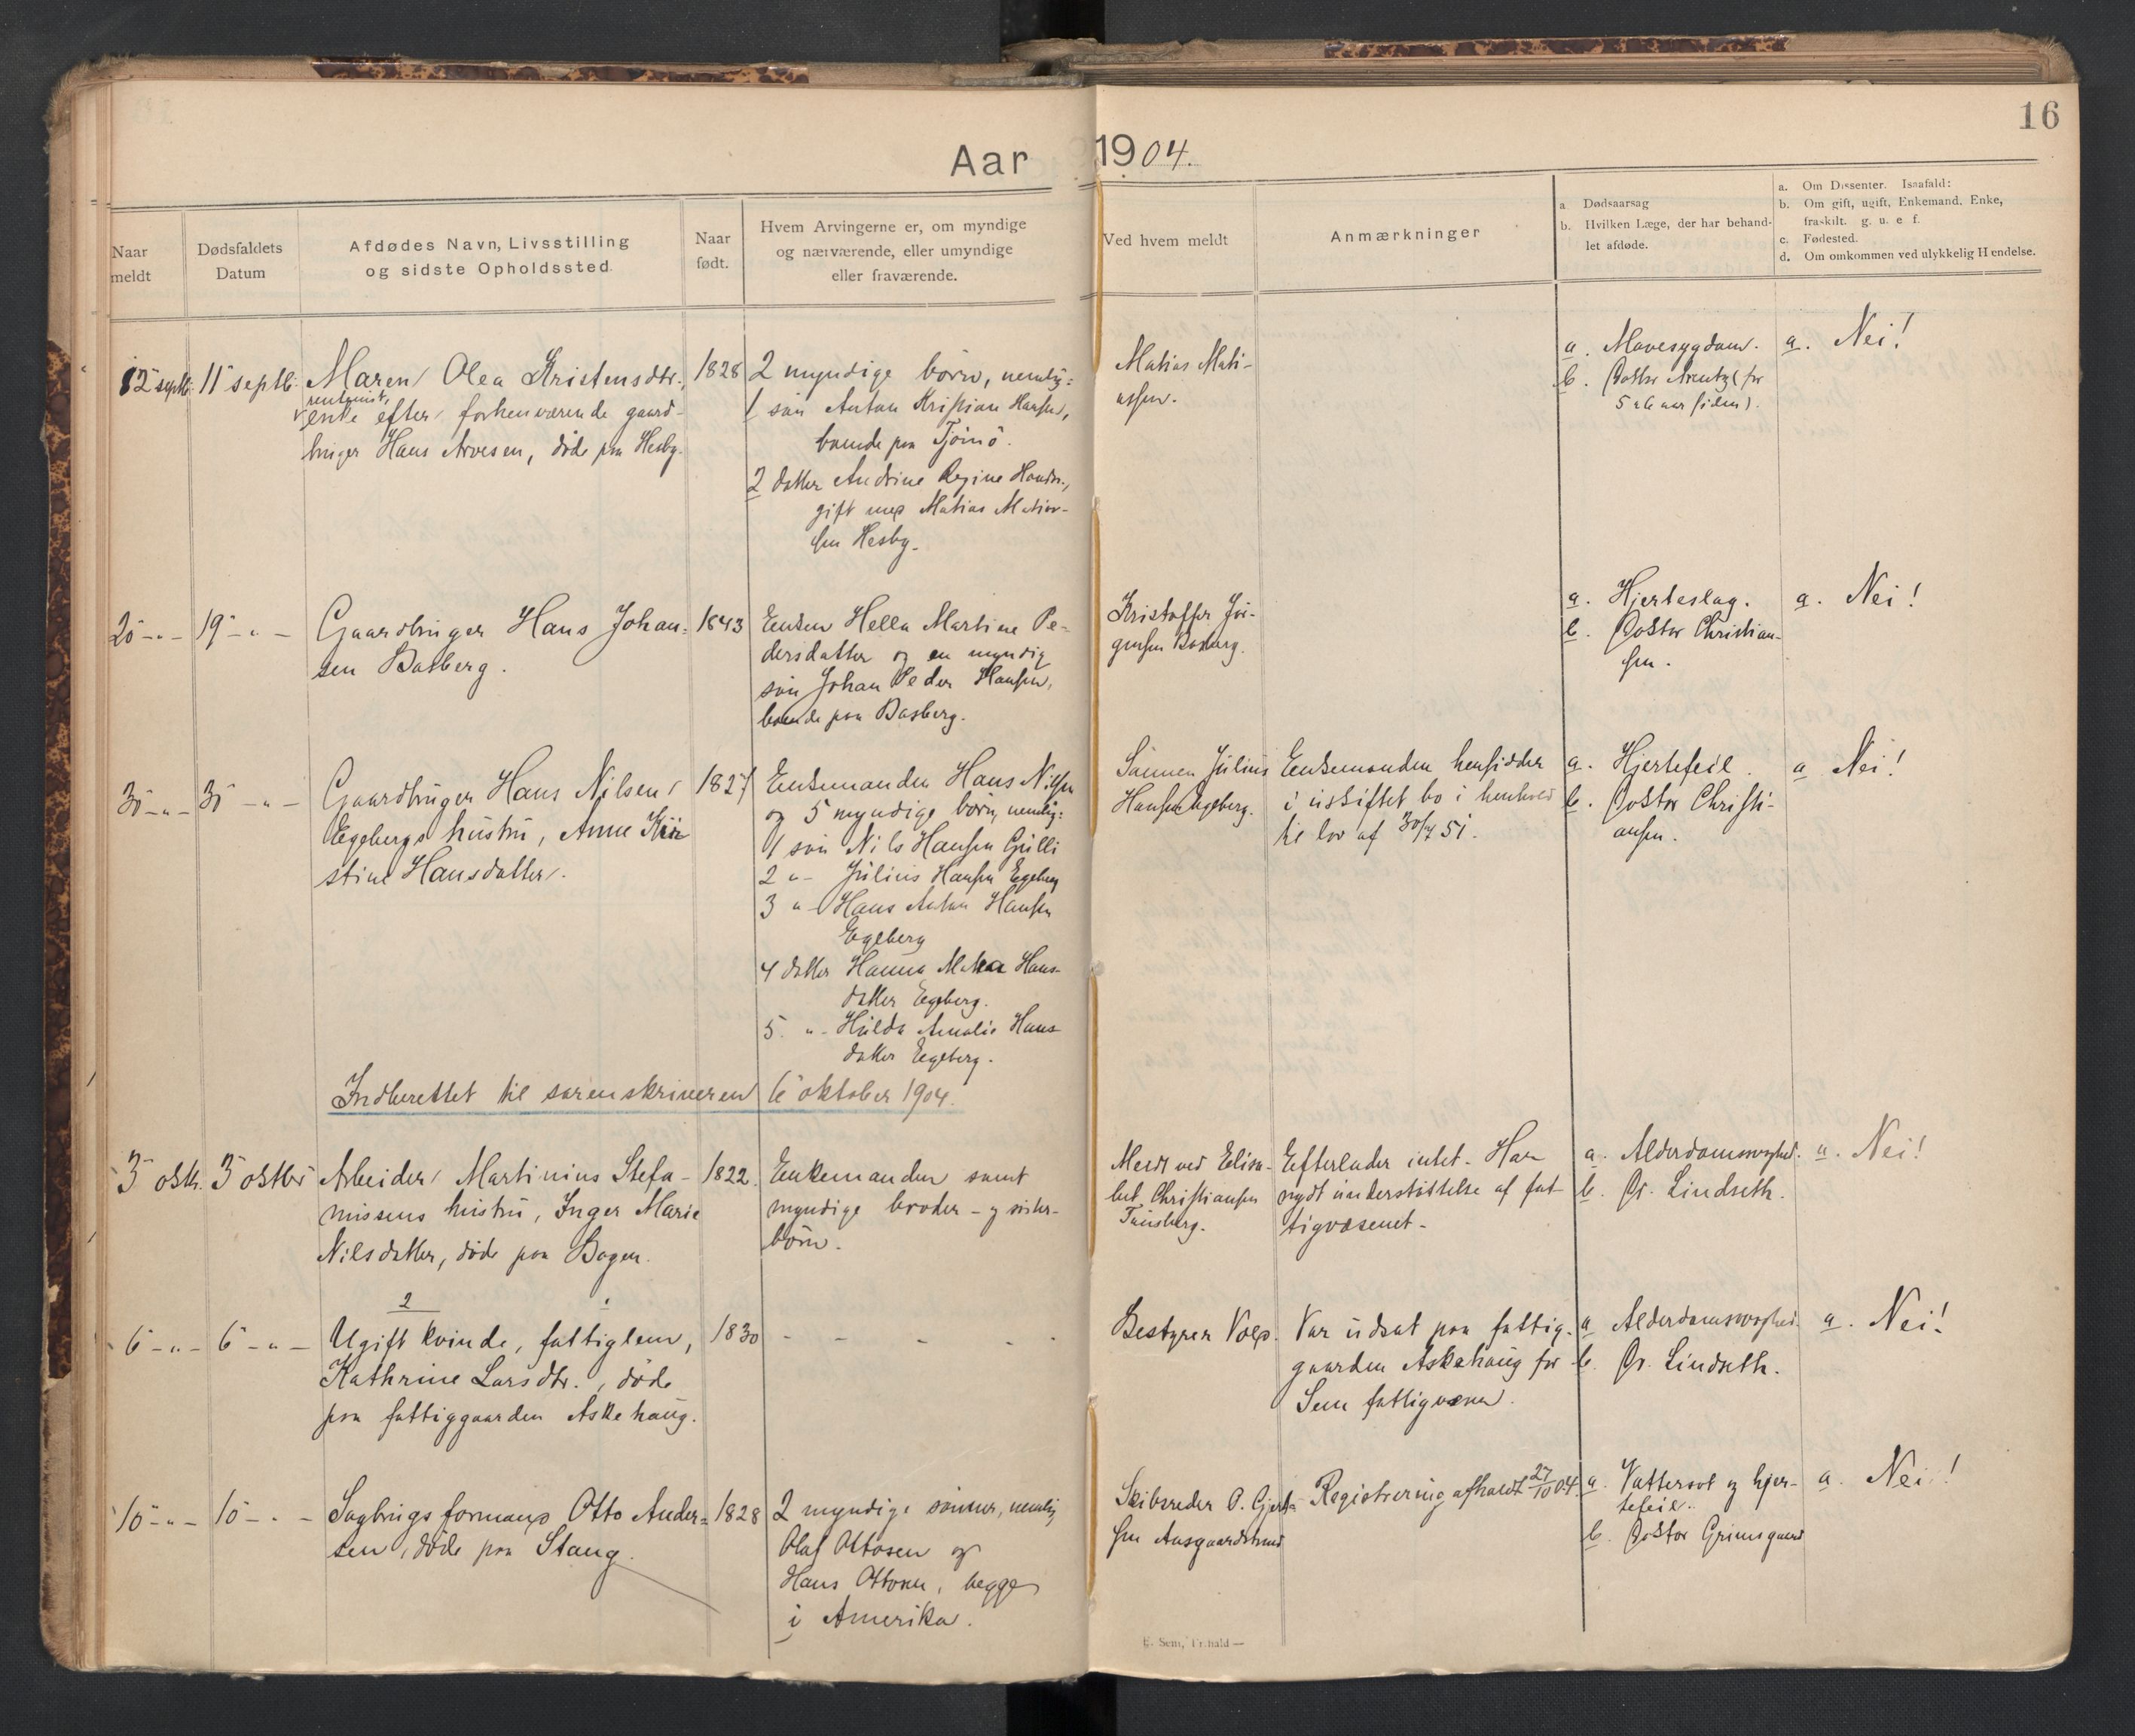 16
Aar 1904.
Naar meldt
Dødsfaldets Datum
Afdødes Navn, Livsstilling og sidste Opholdssted.
Naar født.
Hvem Arvingerne er, om myndige og nærværende, eller umyndige eller fraværende.
Ved hvem meldt
Anmærkninger
a. Dødsaarsag
b. Hvilken Læge, der har behand-
let afdøde.
a. Om Dissenter. Isaafald:
b. Om gift, ugift, Enkemand, Enke,
fraskilt. g. u. e f.
c. Fødested.
d. Om omkommen ved ulykkelig Hendelse.
12 septb. 11 septb.
Maren Olea Kristensdtr.,
rentenist,
enke efter forhenværende gaard-
bruger Hans Arvesen, død paa Hesby.
1828
2 myndige börn, nemlig:
1 sön Anton Kristian Hansen,
boende paa Tjömö.
2 datter Andrine Regine Hansdr.,
gift med Matias Matias-
sen Hesby.
Matias Mati-
assen.
a. Mavesygdom.
b. Doktor Arentz (for
5 a 6 aar siden).
a. Nei!
20 -"- 19 -"-
Gaardbruger Hans Johan-
sen Basberg.
1843
Enken Hella Martine Pe-
dersdatter og en myndig
sön Johan Peder Hansen,
boende paa Basberg.
Kristoffer Jör-
gensen Basberg.
a. Hjerteslag.
b. Doktor Christian-
sen.
a. Nei!
30 -"- 30 -"-
Gaardbruger Hans Nilsen
Egebergs hustru, Anne Kri
stine Hansdatter.
1827
Enkemanden Hans Nilsen
og 5 myndige börn, nemlig:
1 sön Nils Hansen Gulli
2 "- Julius Hansen Egeberg
3 "- Hans Anton Hansen
Egeberg
4 datter Hanna Matea Hans-
datter Egeberg.
5. "- Hulda Amalie Hans-
datter Egeberg.
Sönnen Julius
Hansen Egeberg.
Enkemanden hensidder
i uskiftet bo i henhold
til lov af 30/7 51.
a. Hjertefeil.
b. Doktor Christi-
ansen.
a Nei!
Indberettet til sorenskriveren 6 oktober 1904.
3 oktb. 3 oktbr
Arbeider Martinius Stefa-
nussens hustru, Inger Marie
Nilsdatter, död paa Bogen.
1822.
Enkemanden samt
myndige broder- og söster-
börn.
Meldt ved Elisa-
bet Christiansen
Tönsberg.
Efterlader intet. Har
nydt understöttelse af fat-
tigvæsenet.
a. Alderdomssvaghed.
b. Dr. Lindseth.
a. Nei!
6 -"- 6 -"-
2 1
Ugift kvinde, fattiglem,
Kathrine Larsdtr., död
paa fattiggaarden Askehaug.
1830
- - - - -
Bestyrer Vold.
Var udsat paa fattig-
gaarden Askehaug for
Sem fattigvæsen.
a Alderdomssvaghed.
b. Dr. Lindseth.
a. Nei!
10 -"- 10 -"-
Sagbrugsformand Otto Ander-
sen, död paa Stang.
1828
2 myndige sönner, nemlig
Olaf Ottosen og
Hans Ottosen, begge
i Amerika.
Skibsreder O. Gjert-
sen Aasgaardstrand
Registrering afholdt 27/10 04.
a. Vattersot og hjer-
tefeil.
b. Doktor Grimsgaard
a. Nei!
E. Sem, Fr.hald —